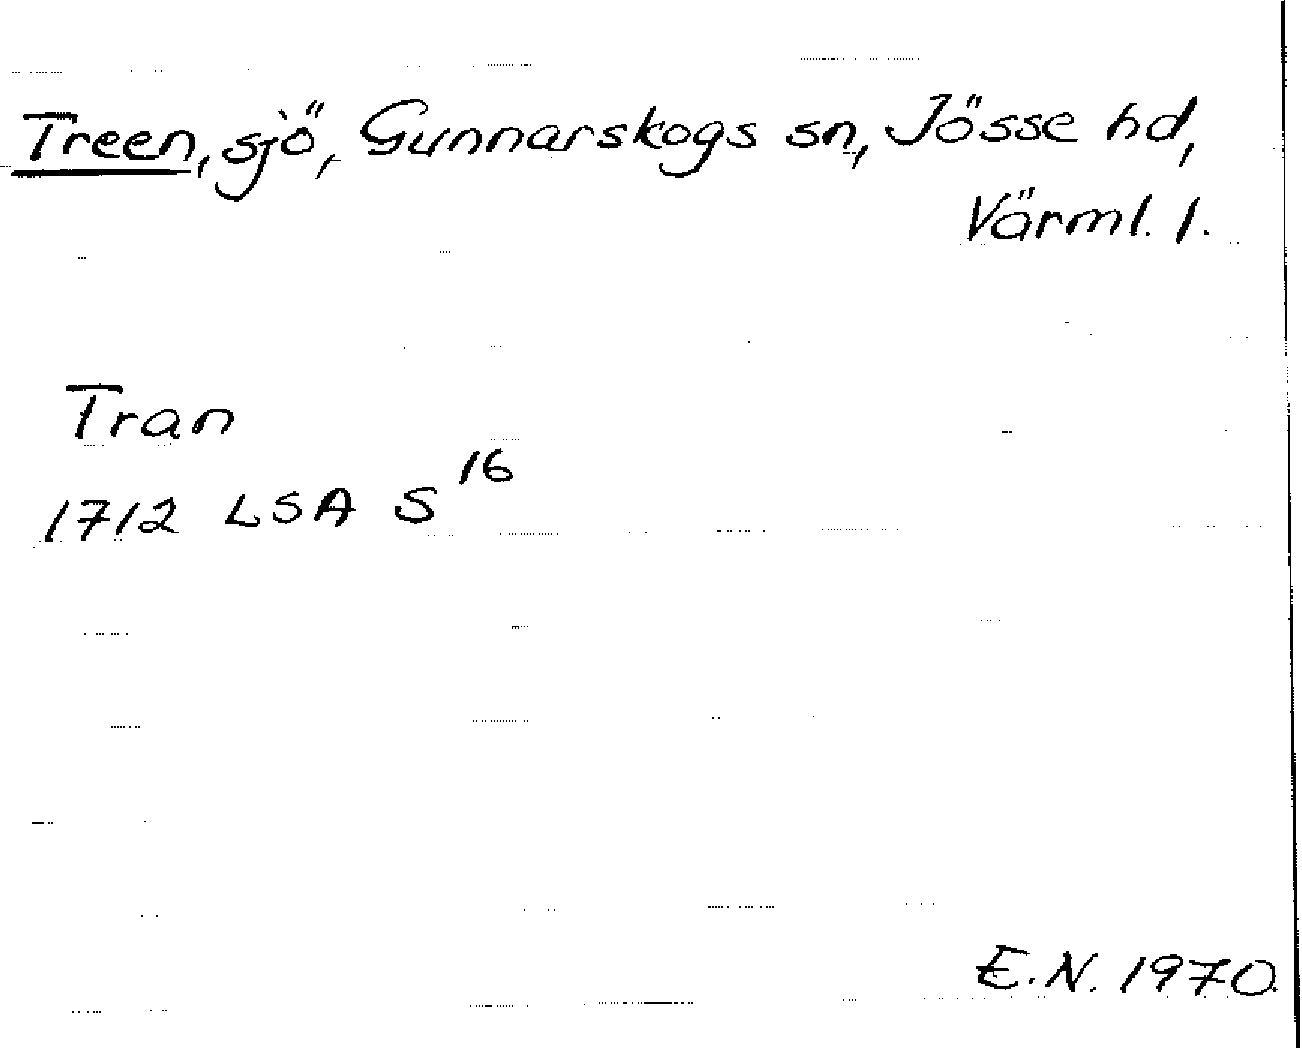 Treen, sjö, Gunnarskogs sn, Jösse hd,
Värml. l.
Tran
1712 LSA S 16
E.N. 1970.